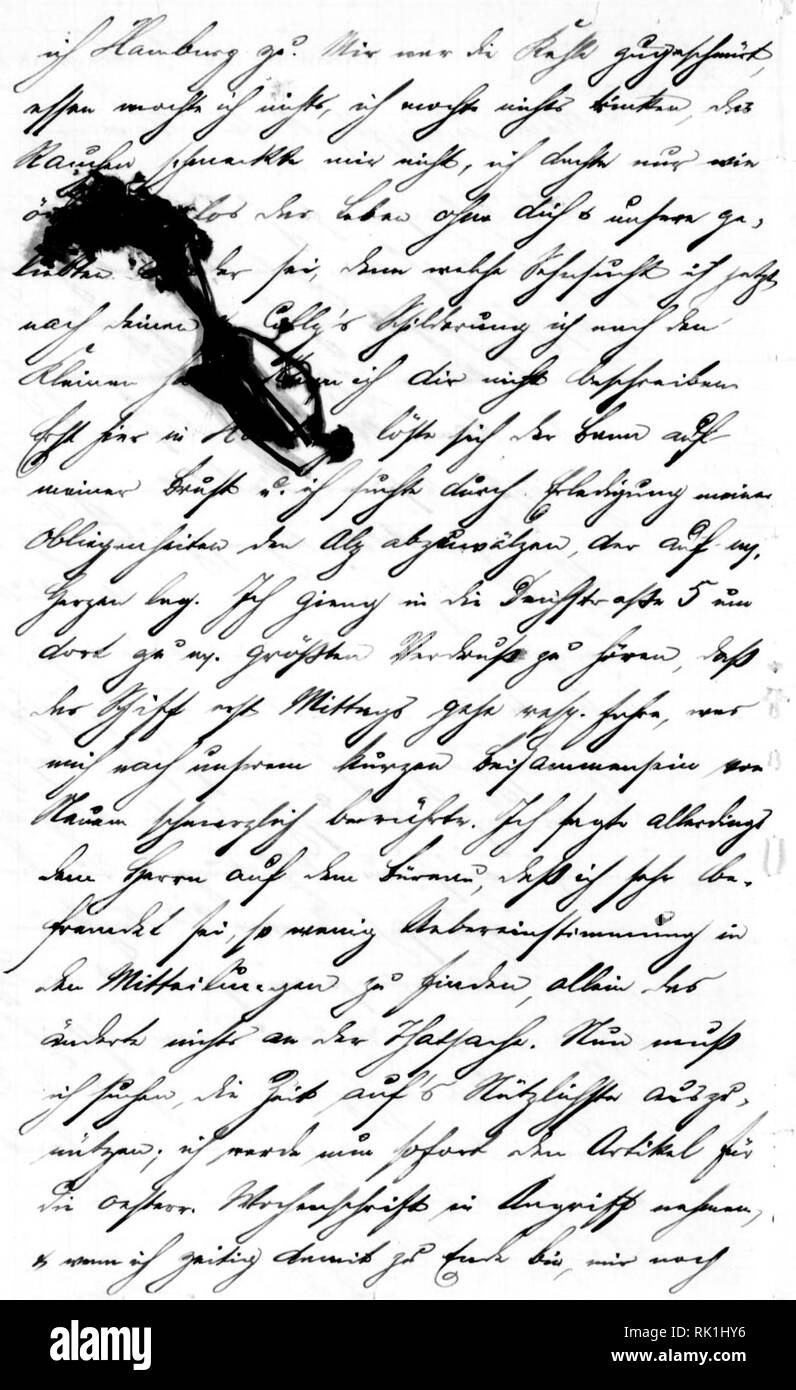 ich Hamburg zu. Mir war die Kehle zugeschnürt,
essen mochte ich nichts, ich mochte nichts trinken, das
Rauchen schmeckte mir nicht, ich dachte nur wie
los das Leben ohne dich & unsere ge-
liebten sei, denn welche Sehnsucht ich jetzt
nach deinen Colly's Schilderung ich nach den
Kleinen ich dir nicht beschreiben.
Erst hier in löste sich der Bann auf
meiner Brust u. ich suchte durch Erledigung meiner
Obliegenheiten den Alp abzuwälzen, der auf m.
Herzen lag. Ich gieng in die Deichstraße 5 um
dort zu m. größten Verdruß zu hören, daß
das Schiff erst Mittags gehe resp. fahre, was
mich nach unserem kurzen Beisammensein von
Neuem schmerzlich berührte. Ich sagte allerdings
dem Herrn auf dem Büreau, daß ich sehr be-
fremdet sei, so wenig Uebereinstimmung in
den Mitteilungen zu finden, allein das
änderte nichts an der Thatsache. Nun muß
ich suchen, die Zeit auf's Nützlichste auszu-
nützen; ich werde nun sofort den Artikel für
die oesterr. Wochenschrift in Angriff nehmen,
& wenn ich zeitig damit zu Ende bin, mir noch
alamy
Image ID: RK1HY6
www.alamy.com